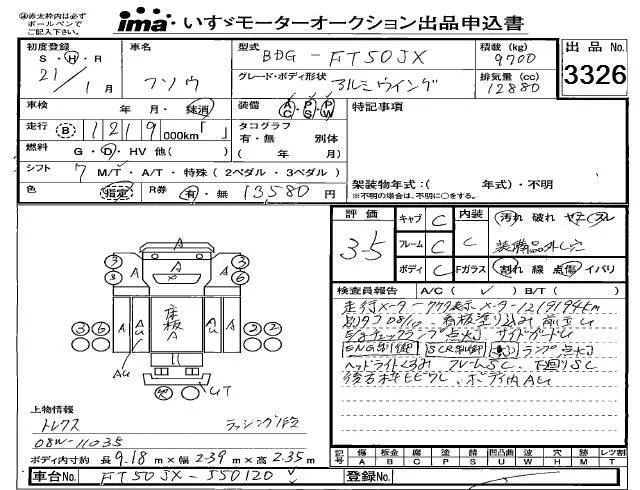 ※赤太枠内は必ず
ボールペンで
ご記入下さい。
ima いすゞモーターオークション出品申込書
初度登録 車名 型式 BDG-FT50JX 積載 (kg) 9700 出品No.
S・H・R 21年 1月 フソウ グレード・ボディ形状 アルミウイング 排気量 (cc) 12880 3326
車検 年 月・抹消 装備 AC・PS・PW 特記事項
走行 B 1219 000km「 」 タコグラフ 有・無 別体
燃料 G・D・HV 他( ) ( 年 月)
シフト 7 M/T・A/T・特殊(2ペダル・3ペダル)
架装物年式:( 年式)・不明
色 指定 R券 有・無 13580円
※不明の場合は、不明に○をする。
評価 3-5 キャブ C 内装 C 汚れ 破れ ヤケ スレ
フレーム C 装備品外し穴
ボディ C Fガラス 割れ 線 点傷 イバリ
検査員報告 A/C( ✓ ) B/T( )
走行メーター
E/gチェックランプ点灯 サイドガードU
ENG制御 SCR制御 ランプ点灯
ヘッドライトくもみ フレームSC、下廻りSC
ボディ内AU
A
3 3 A 3 6
3 6 A AU 床板A A A 2 2
AU
UT
上物情報
トレクス ラッシング1段
08W-11035
ボディ内寸約 長 9.18 m × 幅 2.39 m × 高 2.35 m
記号 傷 板金 腐 塗 錆 凹凸曲 波 穴 跡 レツ割
A B C P S U W H M T
車台No. FT50JX-550120 登録No.